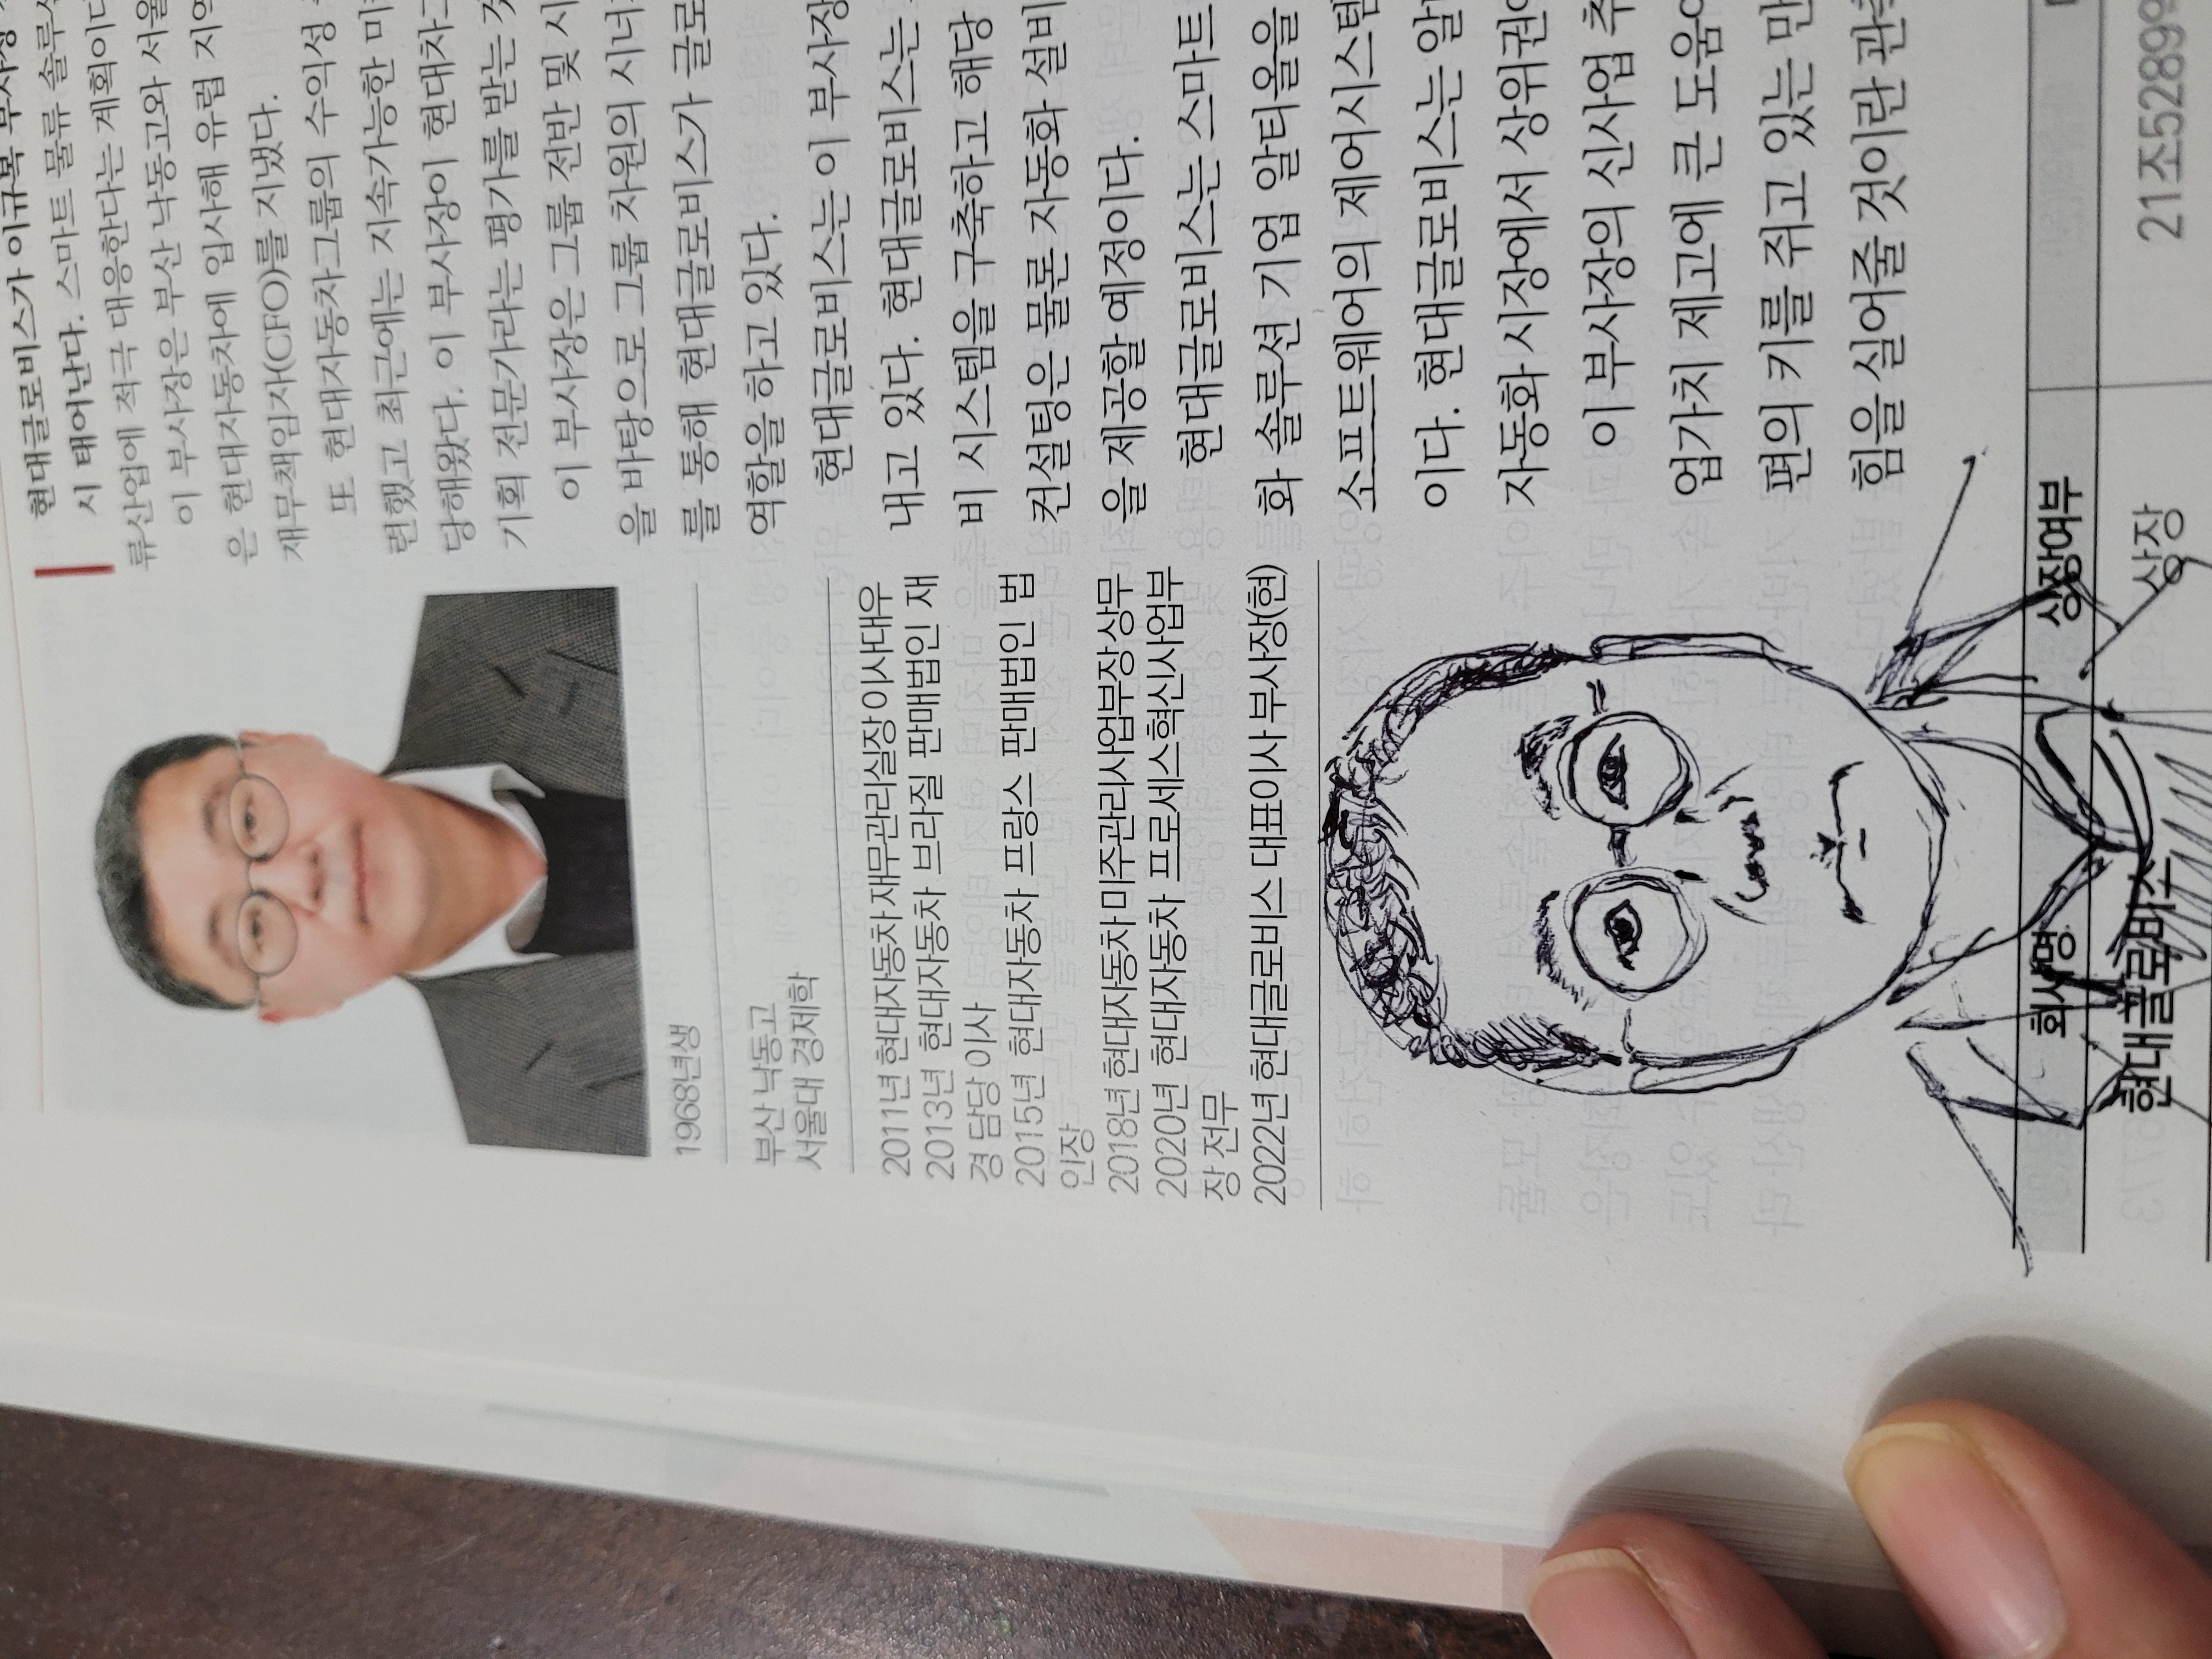 현대글로비스가 이규복 부사장
시 태어난다. 스마트 물류 솔루션
류산업에 적극 대응한다는 계획이다
이 부사장은 부산 낙동고와 서울
은 현대자동차에 입사해 유럽 지역
재무책임자(CFO)를 지냈다.
또 현대자동차그룹의 수익성
련했고 최근에는 지속가능한 미
당해왔다. 이 부사장이 현대차그
기획 전문가라는 평가를 받는 것
이 부사장은 그룹 전반 및 시
을 바탕으로 그룹 차원의 시너
를 통해 현대글로비스가 글로
역할을 하고 있다.
현대글로비스는 이 부사장
내고 있다. 현대글로비스는
비 시스템을 구축하고 해당
컨설팅은 물론 자동화 설비
을 제공할 예정이다.
현대글로비스는 스마트
화 솔루션 기업 알티올을
소프트웨어의 제어시스템
이다. 현대글로비스는 알
자동화 시장에서 상위권
이 부사장의 신사업 추
업가치 제고에 큰 도움
편의 키를 쥐고 있는 만
힘을 실어줄 것이란 관측
1968년생
부산 낙동고
서울대 경제학
2011년 현대자동차 재무관리실장 이사대우
2013년 현대자동차 브라질 판매법인 재
경 담당 이사
2015년 현대자동차 프랑스 판매법인 법
인장
2018년 현대자동차 미주관리사업부장 상무
2020년 현대자동차 프로세스혁신사업부
장 전무
2022년 현대글로비스 대표이사 부사장(현)
회사명 상장여부
현대글로비스 상장 21조5289억